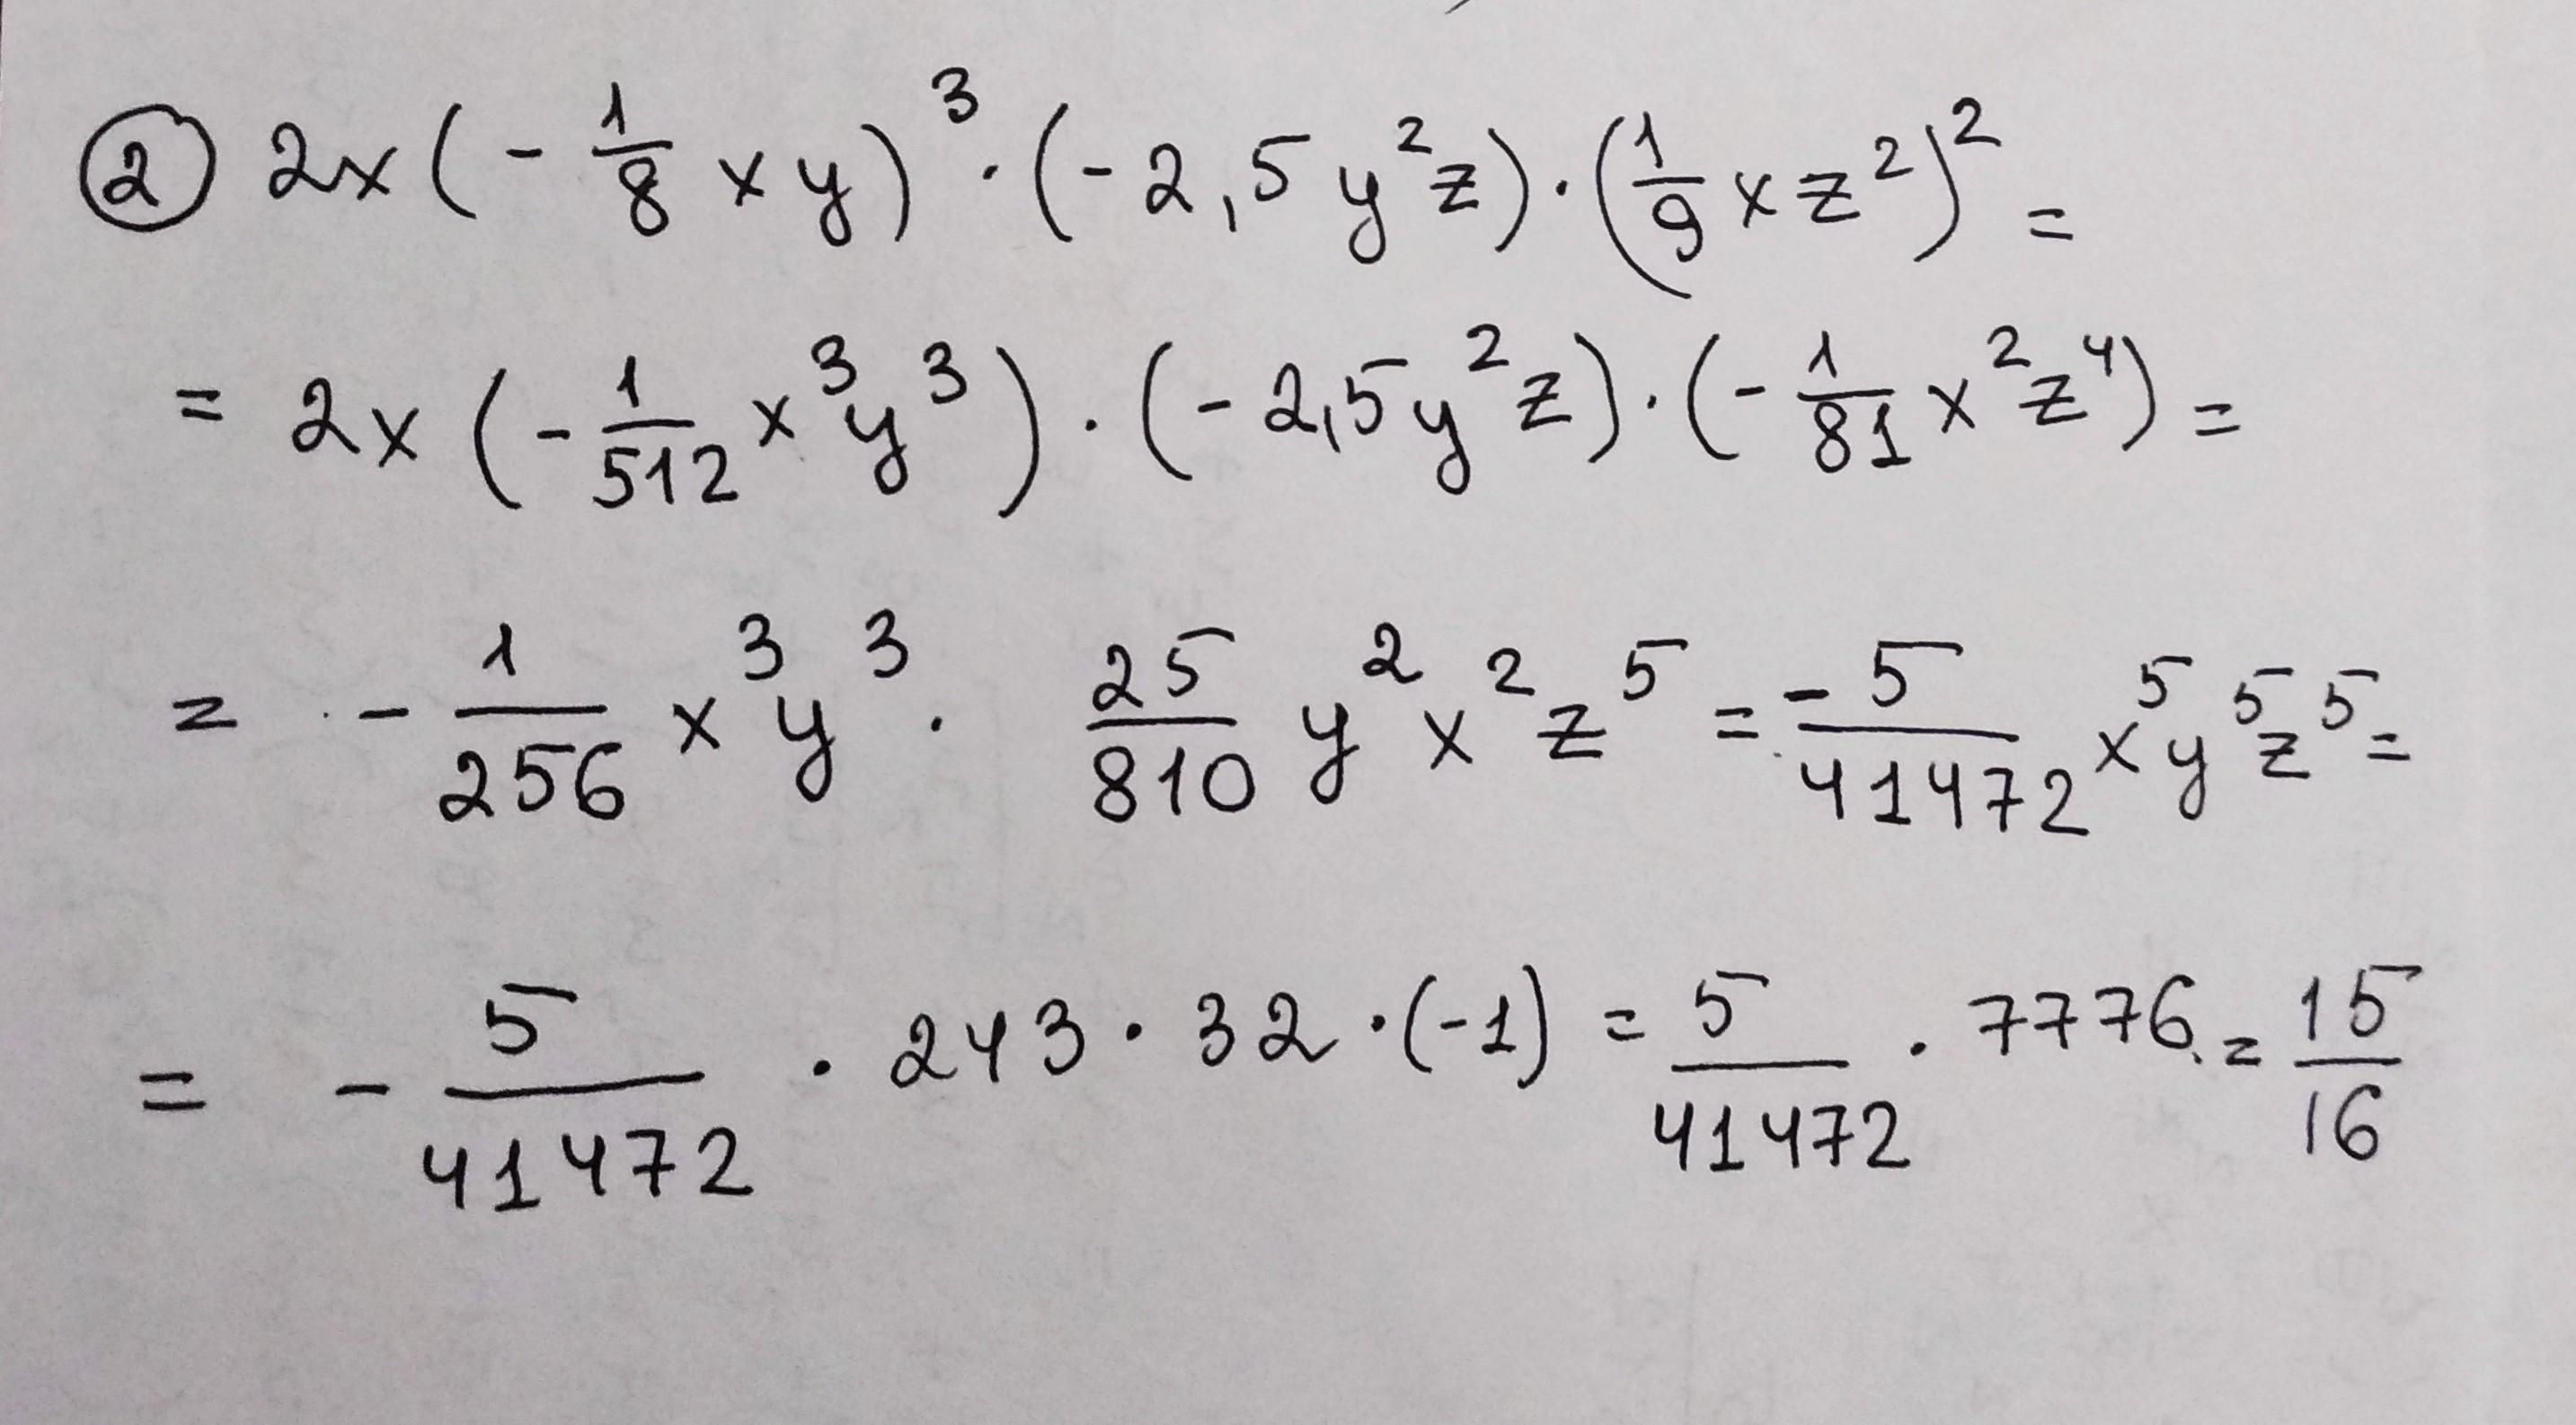 ② 2x(-1/8 xy)³·(-2,5y²z)·(1/9 xz²)² =
= 2x(-1/512 x³y³)·(-2,5y²z)·(-1/81 x²z⁴) =
= -1/256 x³y³ · 25/810 y²x²z⁵ = -5/41472 x⁵y⁵z⁵ =
= -5/41472 · 243·32·(-1) = 5/41472 · 7776 = 15/16